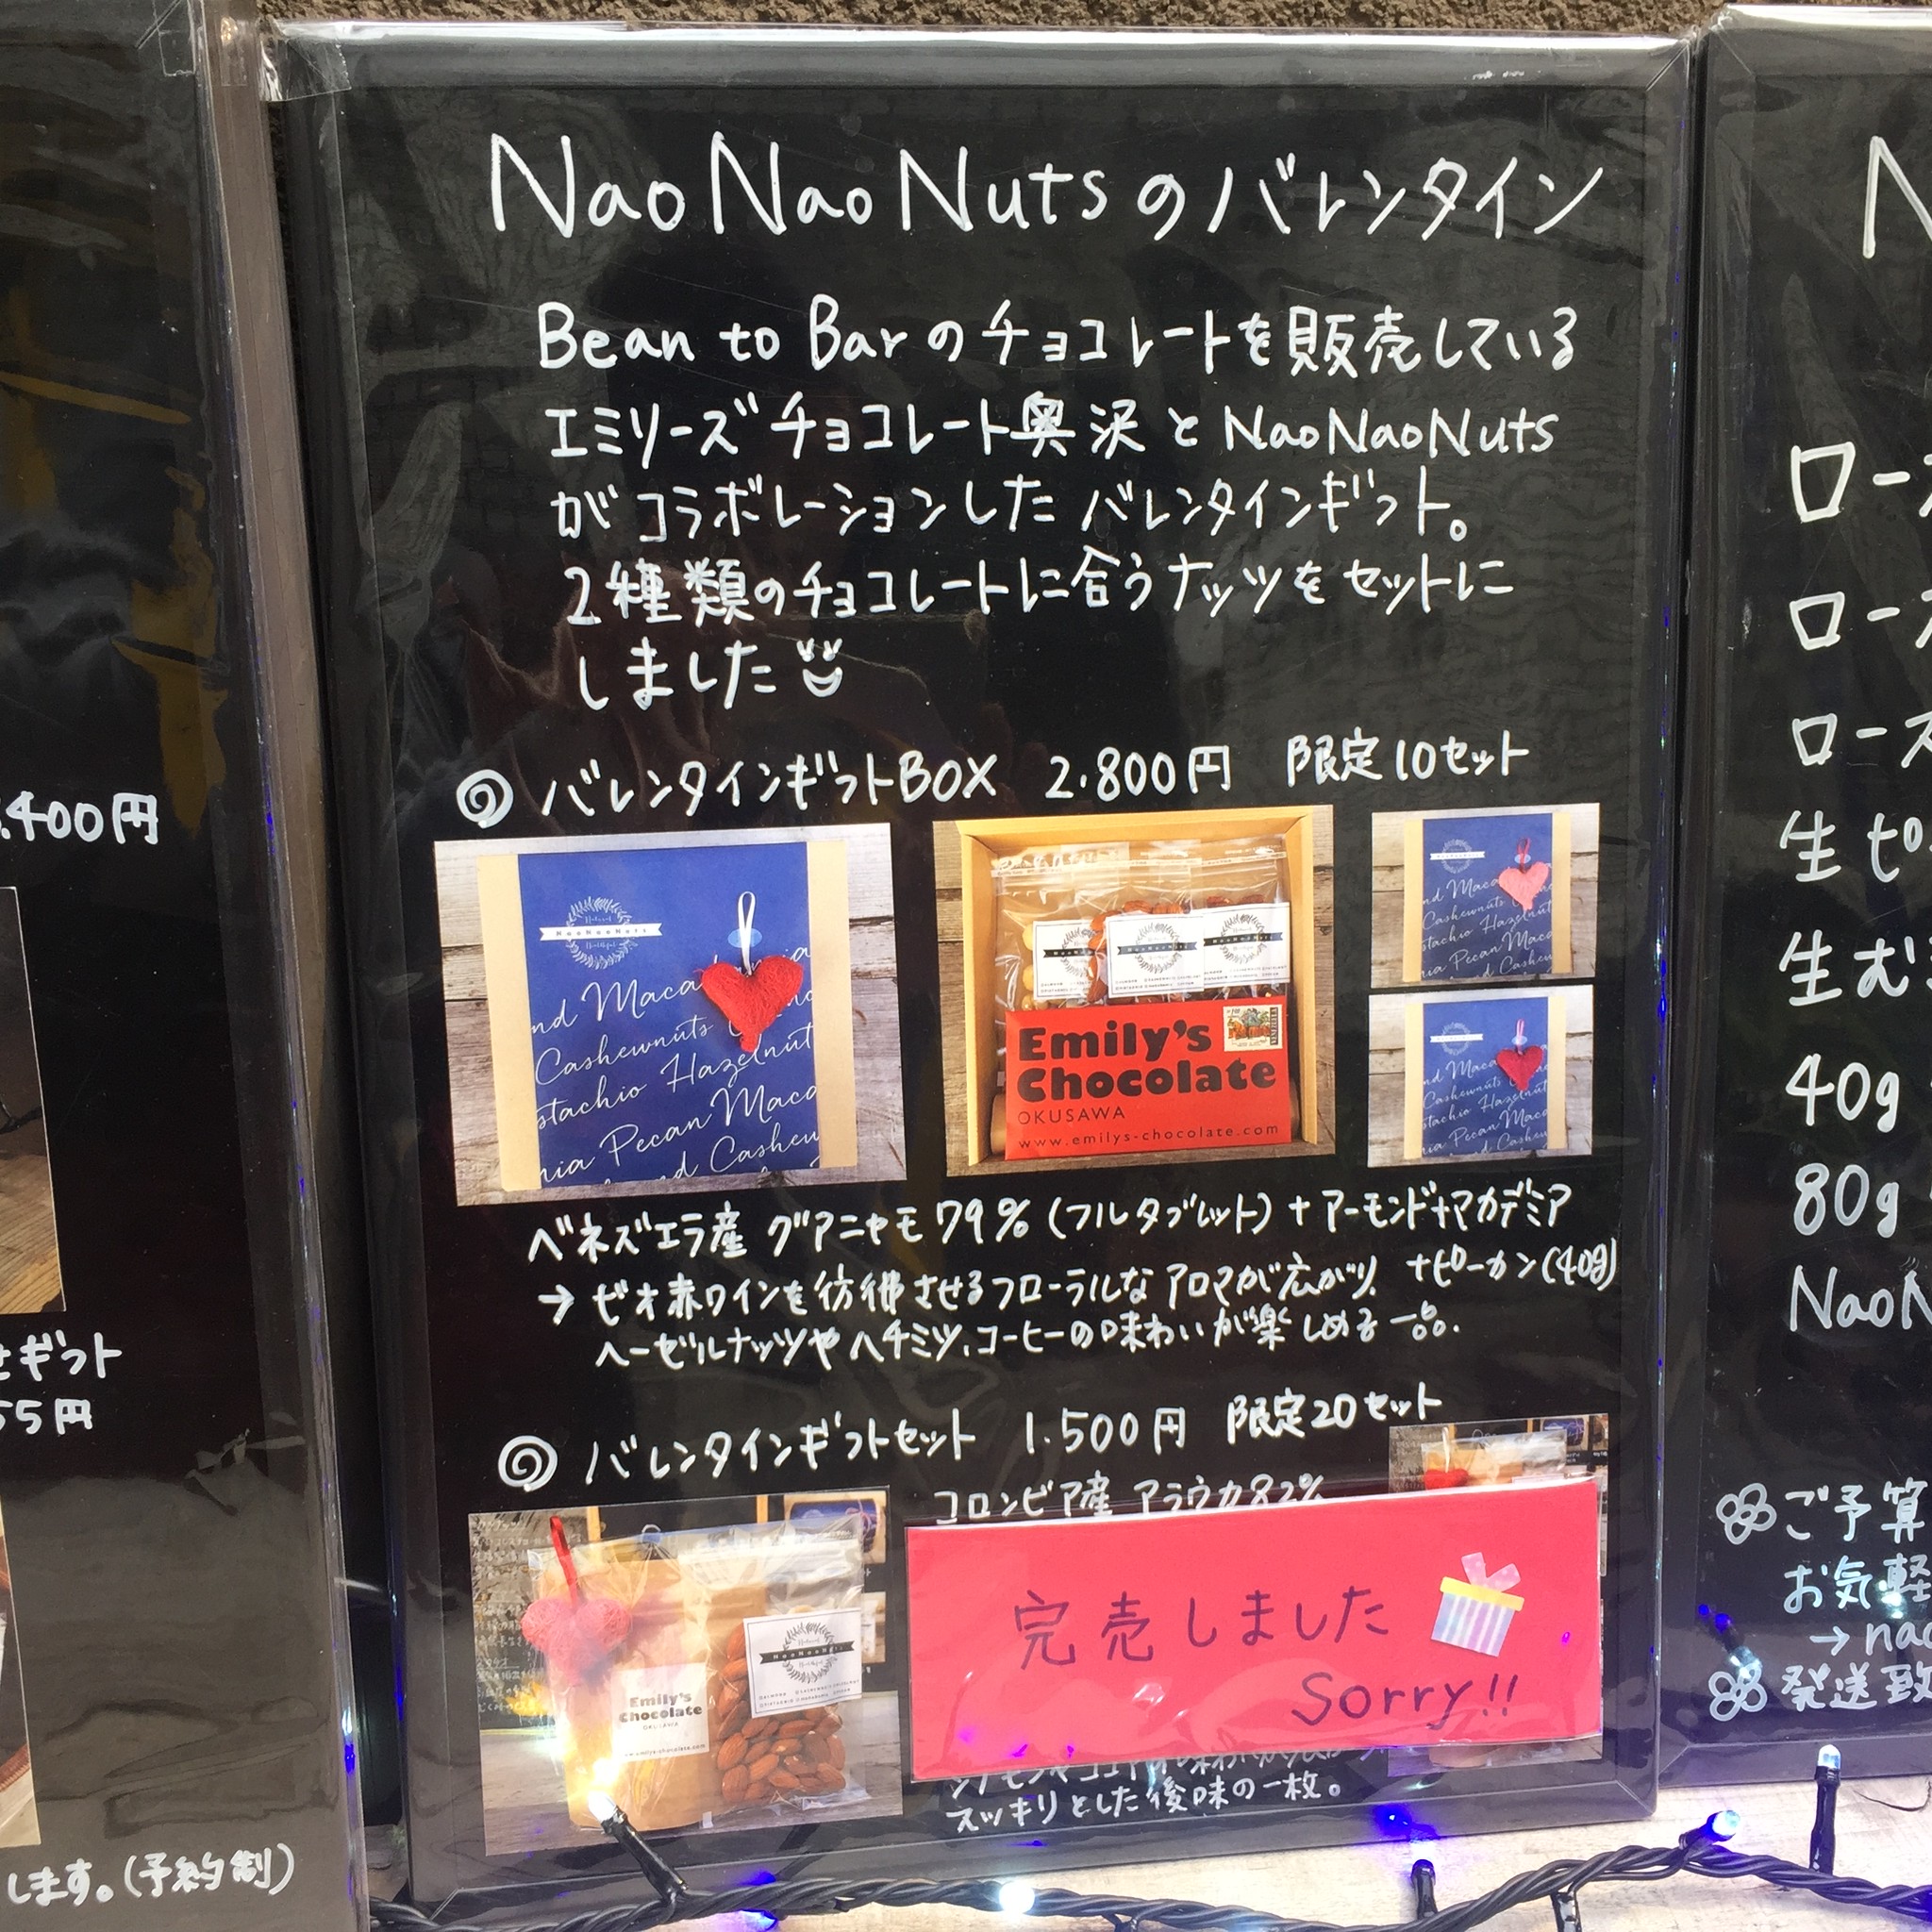 NaoNaoNutsのバレンタイン
Bean to Barのチョコレートを販売している
エミリーズチョコレート奥沢とNaoNaoNuts
がコラボレーションしたバレンタインギフト。
2種類のチョコレートに合うナッツをセットに
しました
バレンタインギフトBOX 2.800円 限定10セット
NaoNaoNuts
nd Maca
Cashewnuts
stachio Hazelnut
nia Pecan Maca
nd Cashew
NaoNaoNuts
Emily's
Chocolate
OKUSAWA
www.emilys-chocolate.com
nd Maca
Cashewnuts
stachio Hazelnut
nia Pecan Maca
nd Cashew
nd Maca
Cashewnuts
stachio Hazelnut
nia Pecan Maca
nd Cashew
ベネズエラ産 グアニャモ79%(フルタブレット)+アーモンド+マカデミア
+ピーカン(40g)
→ビオ赤ワインを彷彿させるフローラルなアロマが広がり、
ヘーゼルナッツやハチミツ、コーヒーの味わいが楽しめる一品。
バレンタインギフトセット 1.500円 限定20セット
コロンビア産 アラウカ82%
Emily's
Chocolate
OKUSAWA
www.emilys-chocolate.com
NaoNaoNuts
完売しました
Sorry!!
スッキリとした後味の一枚。
.400円
せギフト
55円
します。(予約制)
N
ロー
ロー
ロース
生ピ
生む
40g
80g
NaoN
ご予算
お気軽
→nao
発送致